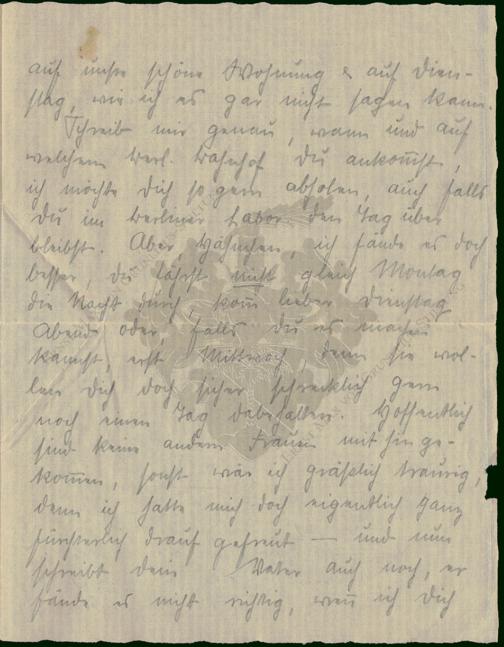 auf unsre schöne Wohnung & auf Diens-
tag, wie ich es gar nicht sagen kann.
Schreib mir genau, wann und auf
welchem Berl. Bahnhof du ankom̄st,
ich möchte dich so gern abholen, auch falls
du im Berliner Labor den Tag über
bleibst. Aber, ich fände es doch
besser, du fährst nicht gleich Montag
die Nacht durch, kom̄ lieber Dienstag
Abend oder, falls du es machen
kannst, erst Mittwoch, denn sie wol-
len dich doch sicher schrecklich gern
noch einen Tag dabehalten. Hoffentlich
sind keine andern Frauen mit hin ge-
kom̄en, sonst wär ich gräßlich traurig,
denn ich hatte mich doch eigentlich ganz
fürchterlich drauf gefreut — und nun
schreibt dein Vater auch noch, er
fände es nicht richtig, wen̄ ich dich